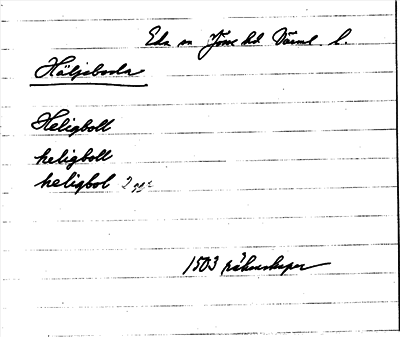 Eda sn Jösse hd Värml l.
Häljeboda
Heligboll
heligboll
heligbol 2 ggr
1503 räkenskaper